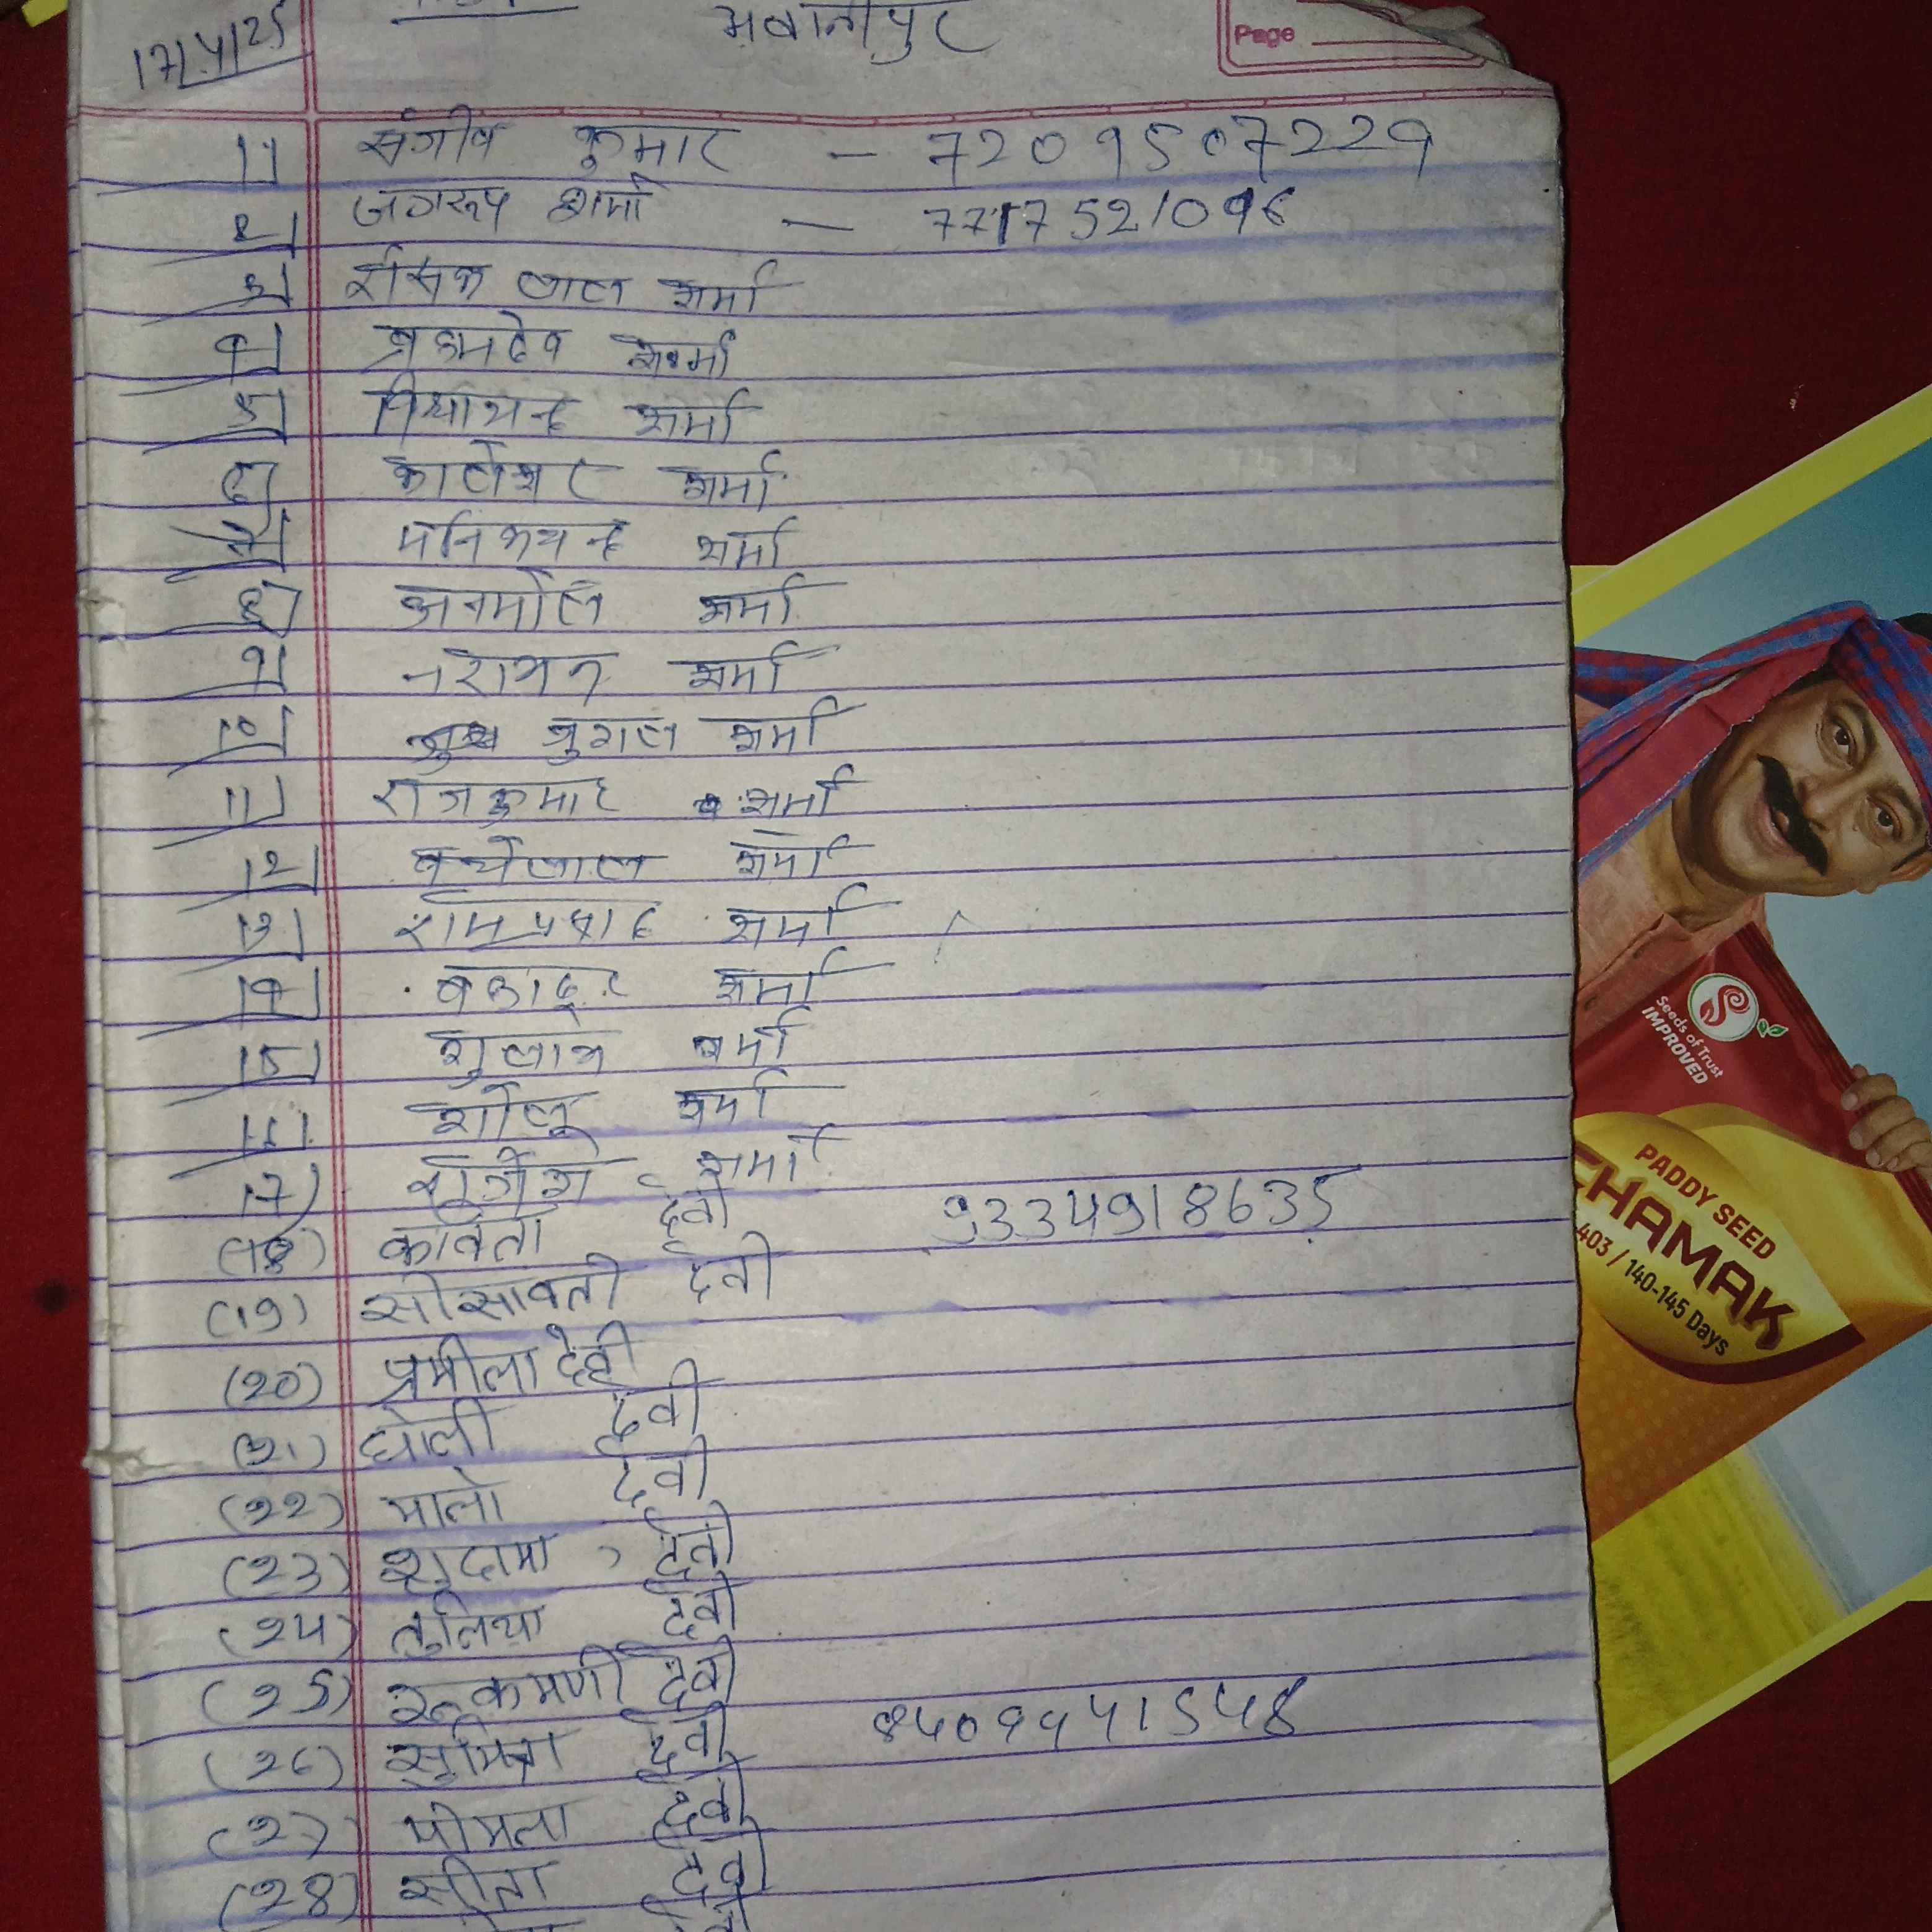 17/4/25
भवानीपुर
Page
1) संजीव कुमार – 7209507229
2) जगरूप शर्मा – 7717521096
3) रसिक लाल शर्मा
4) ब्रह्मदेव शर्मा
5) शर्मा
6) कालेश्वर शर्मा
7) मनिकचन्द शर्मा
8) अनमोल शर्मा
9) नरायन शर्मा
10) जुगल शर्मा
11) राजकुमार शर्मा
12) बच्चेलाल शर्मा
13) रामप्रसाद शर्मा
14) बहादुर शर्मा
15) गुलाब शर्मा
शर्मा
17) शर्मा
(18) कविता देवी 9334918635
(19) सोसावती देवी
(20) प्रमीला देवी
(21) घोली देवी
(22) मालो देवी
(23) शुदामा देवी
(24) तुलिया देवी
(25) रूकमणी देवी
(26) सुमित्रा देवी
(27) देवी
(28) सीता देवी
Seeds of Trust
IMPROVED
PADDY SEED
CHAMAK
403 / 140-145 Days